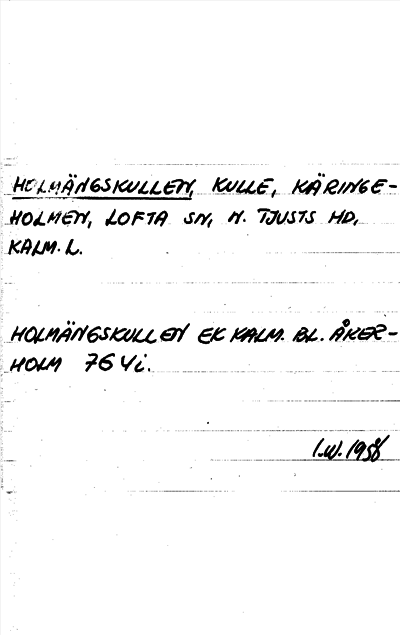 HOLMÄNGSKULLEN, KULLE, KÄRINGE-
HOLMEN, LOFTA SN, N. TJUSTS HD,
KALM. L.
HOLMÄNGSKULLEN EK KALM. BL. ÅKER-
HOLM 76 4i.
I.W. 1958